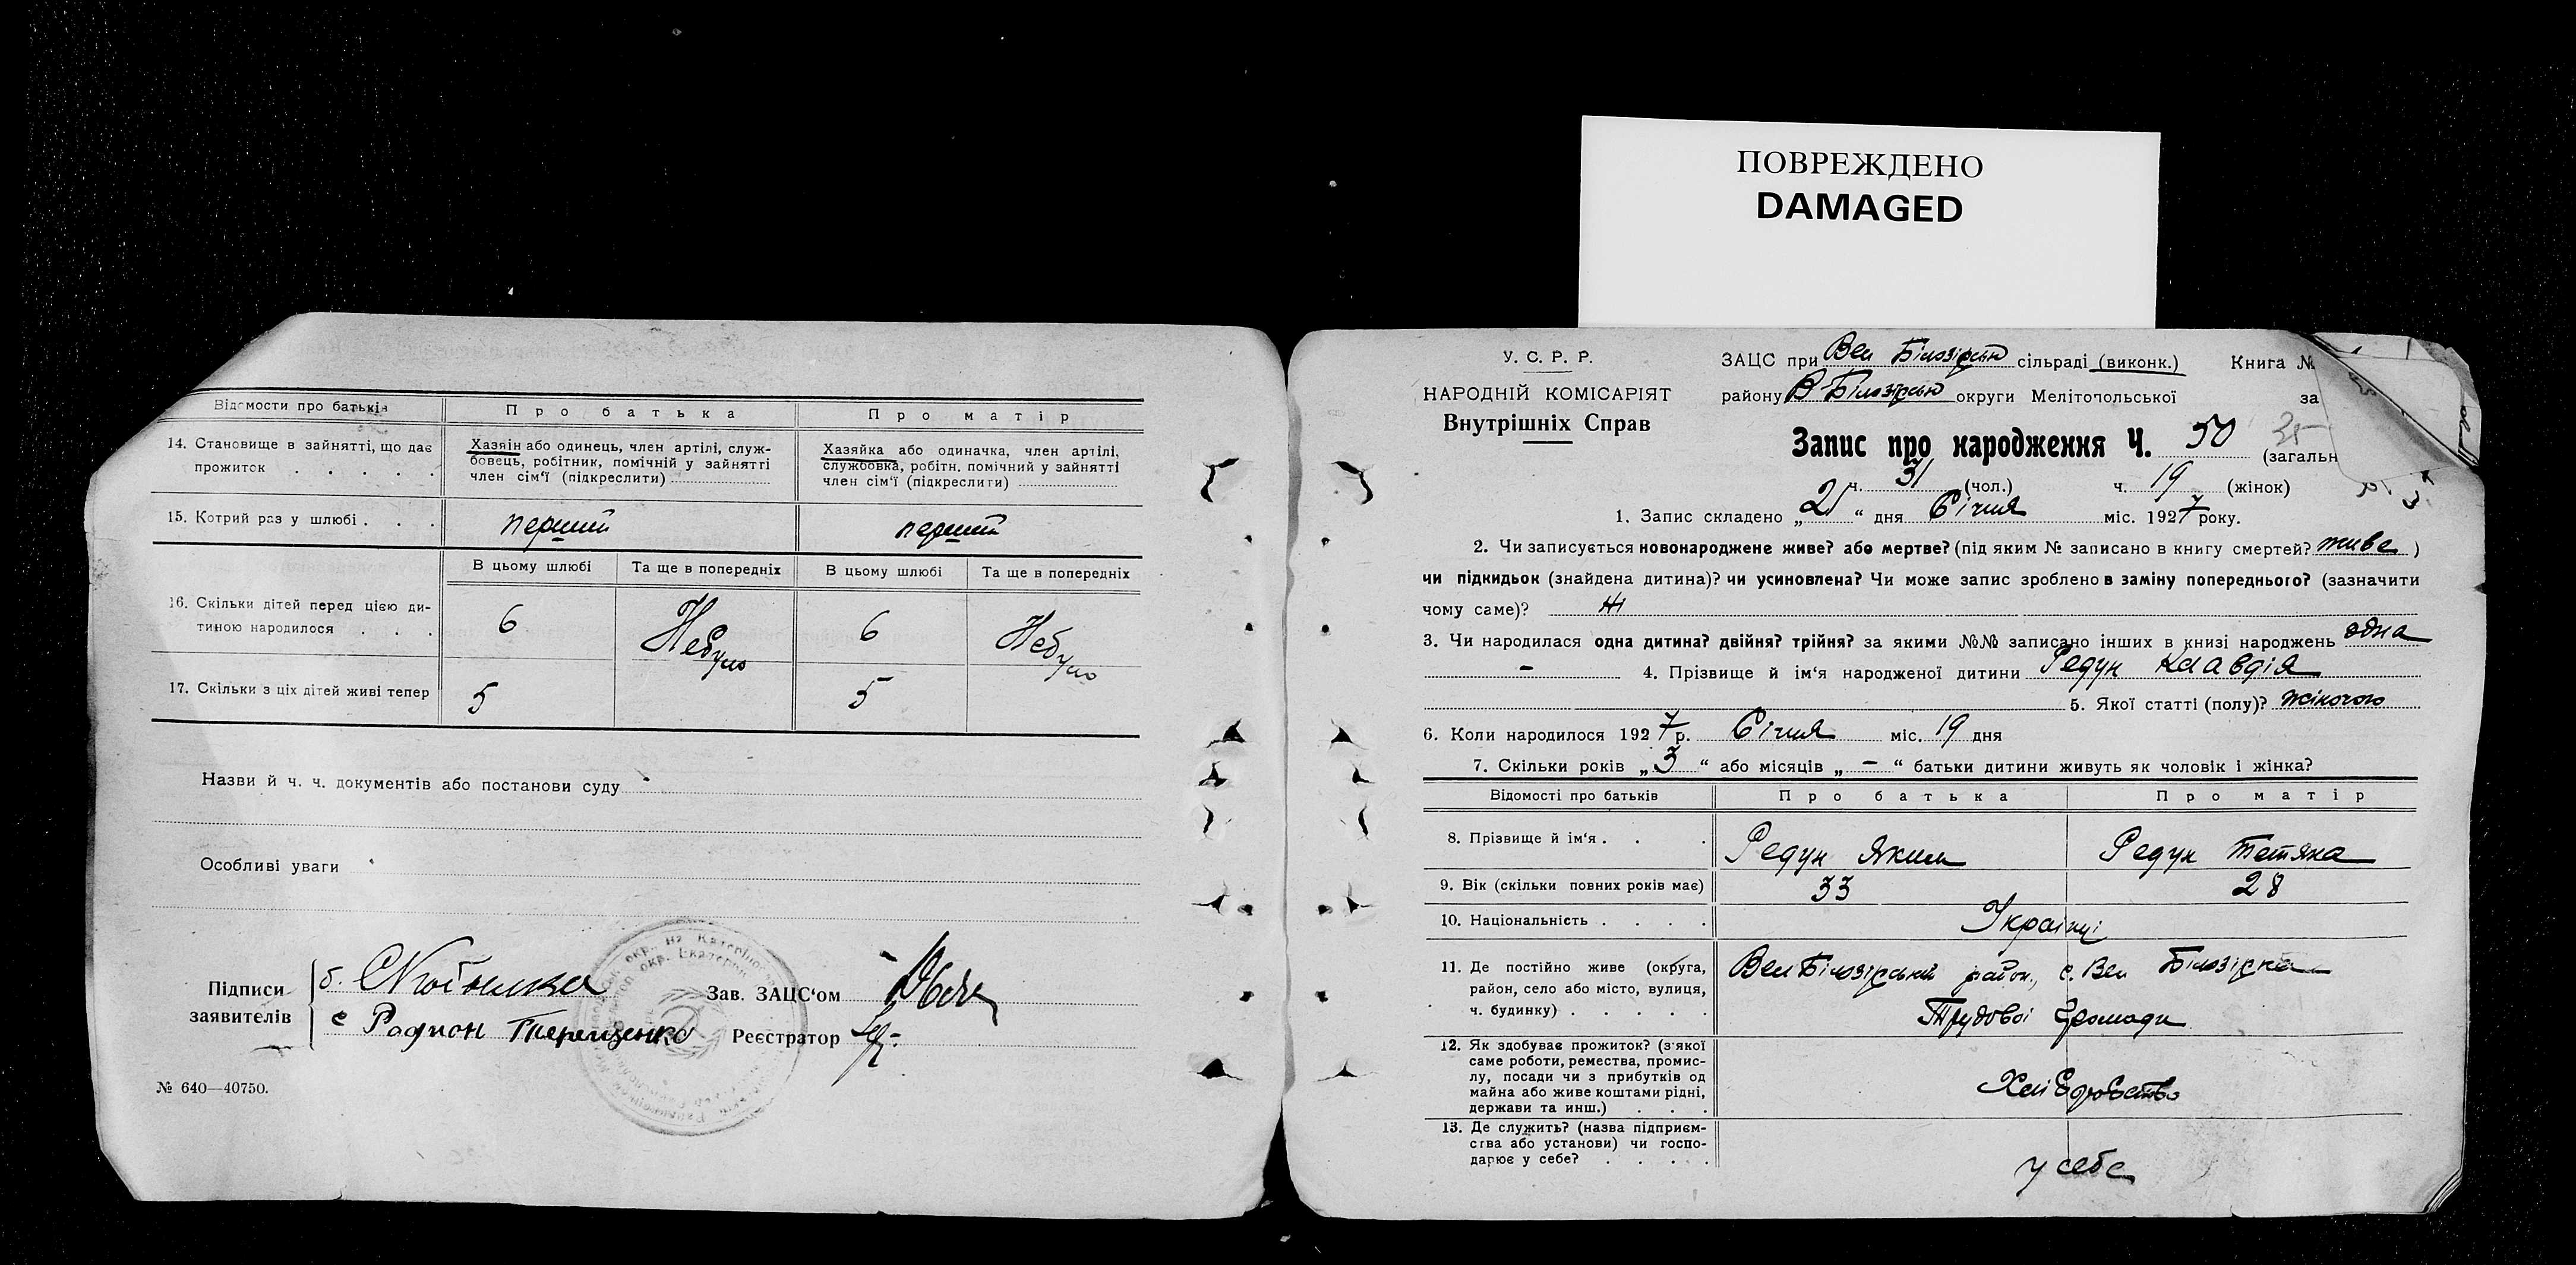 ПОВРЕЖДЕНО
DAMAGED
Відомости про батьків
Про батька
Про матір
14. Становище в зайнятті, що дає прожиток . . . . .
Хазяін або одинець, член артілі, служ-
бовець, робітник, помічній у зайнятті
член сім'ї (підкреслити)
Хазяйка або одиначка, член артілі,
службовка, робітн. помічний у зайнятті
член сім'ї (підкреслити)
15. Котрий раз у шлюбі . . .
перший
перший
В цьому шлюбі
Та ще в попередніх
В цьому шлюбі
Та ще в попередніх
16. Скільки дітей перед цією ди-
тиною народилося . . .
6
Небуло
6
Небуло
17. Скільки з ціх дітей живі тепер
5
5
Назви й ч. ч. документів або постанови суду
Особливі уваги
Підписи
заявителів
б.
с Родион Терещенко
Зав. ЗАЦС'ом
Реєстратор
№ 640—40750.
У. С. Р. Р.
НАРОДНІЙ КОМІСАРІЯТ
Внутрішніх Справ
ЗАЦС при Вел Білозірськ сільраді (виконк.) Книга №
району В-Білозірськ округи Мелітопольської за
Запис про народження Ч. 50
35
(загальн
ч. 31 (чол.) ч. 19 (жінок)
1. Запис складено „21“ дня Січня міс. 1927 року.
2. Чи записується новонароджене живе? або мертве? (під яким № записано в книгу смертей? живе )
чи підкидьок (знайдена дитина)? чи усиновлена? Чи може запис зроблено в заміну попереднього? (зазначити
чому саме)? Ні
3. Чи народилася одна дитина? двійня? трійня? за якими №№ записано інших в книзі народжень одна
— 4. Прізвище й ім'я народженої дитини Редун Клавдія
5. Якої статті (полу)? жіночого
6. Коли народилося 1927 р. Січня міс. 19 дня
7. Скільки років „3“ або місяців „—“ батьки дитини живуть як чоловік і жінка?
Відомості про батьків
Про батька
Про матір
8. Прізвище й ім'я . . .
Редун Яким
Редун Тетяна
9. Вік (скільки повних років має)
33
28
10. Національність . . . .
Українці
11. Де постійно живе (округа,
район, село або місто, вулиця,
ч. будинку) . . . . .
Вел Білозірський район, с. Вел Білозірка
Трудової Громади
12. Як здобуває прожиток? (з якої
саме роботи, ремества, промис-
лу, посади чи з прибутків од
майна або живе коштами рідні,
держави та инш.) . . .
Хліборобство
13. Де служить? (назва підприєм-
ства або установи) чи госпо-
дарює у себе? . . . .
у себе